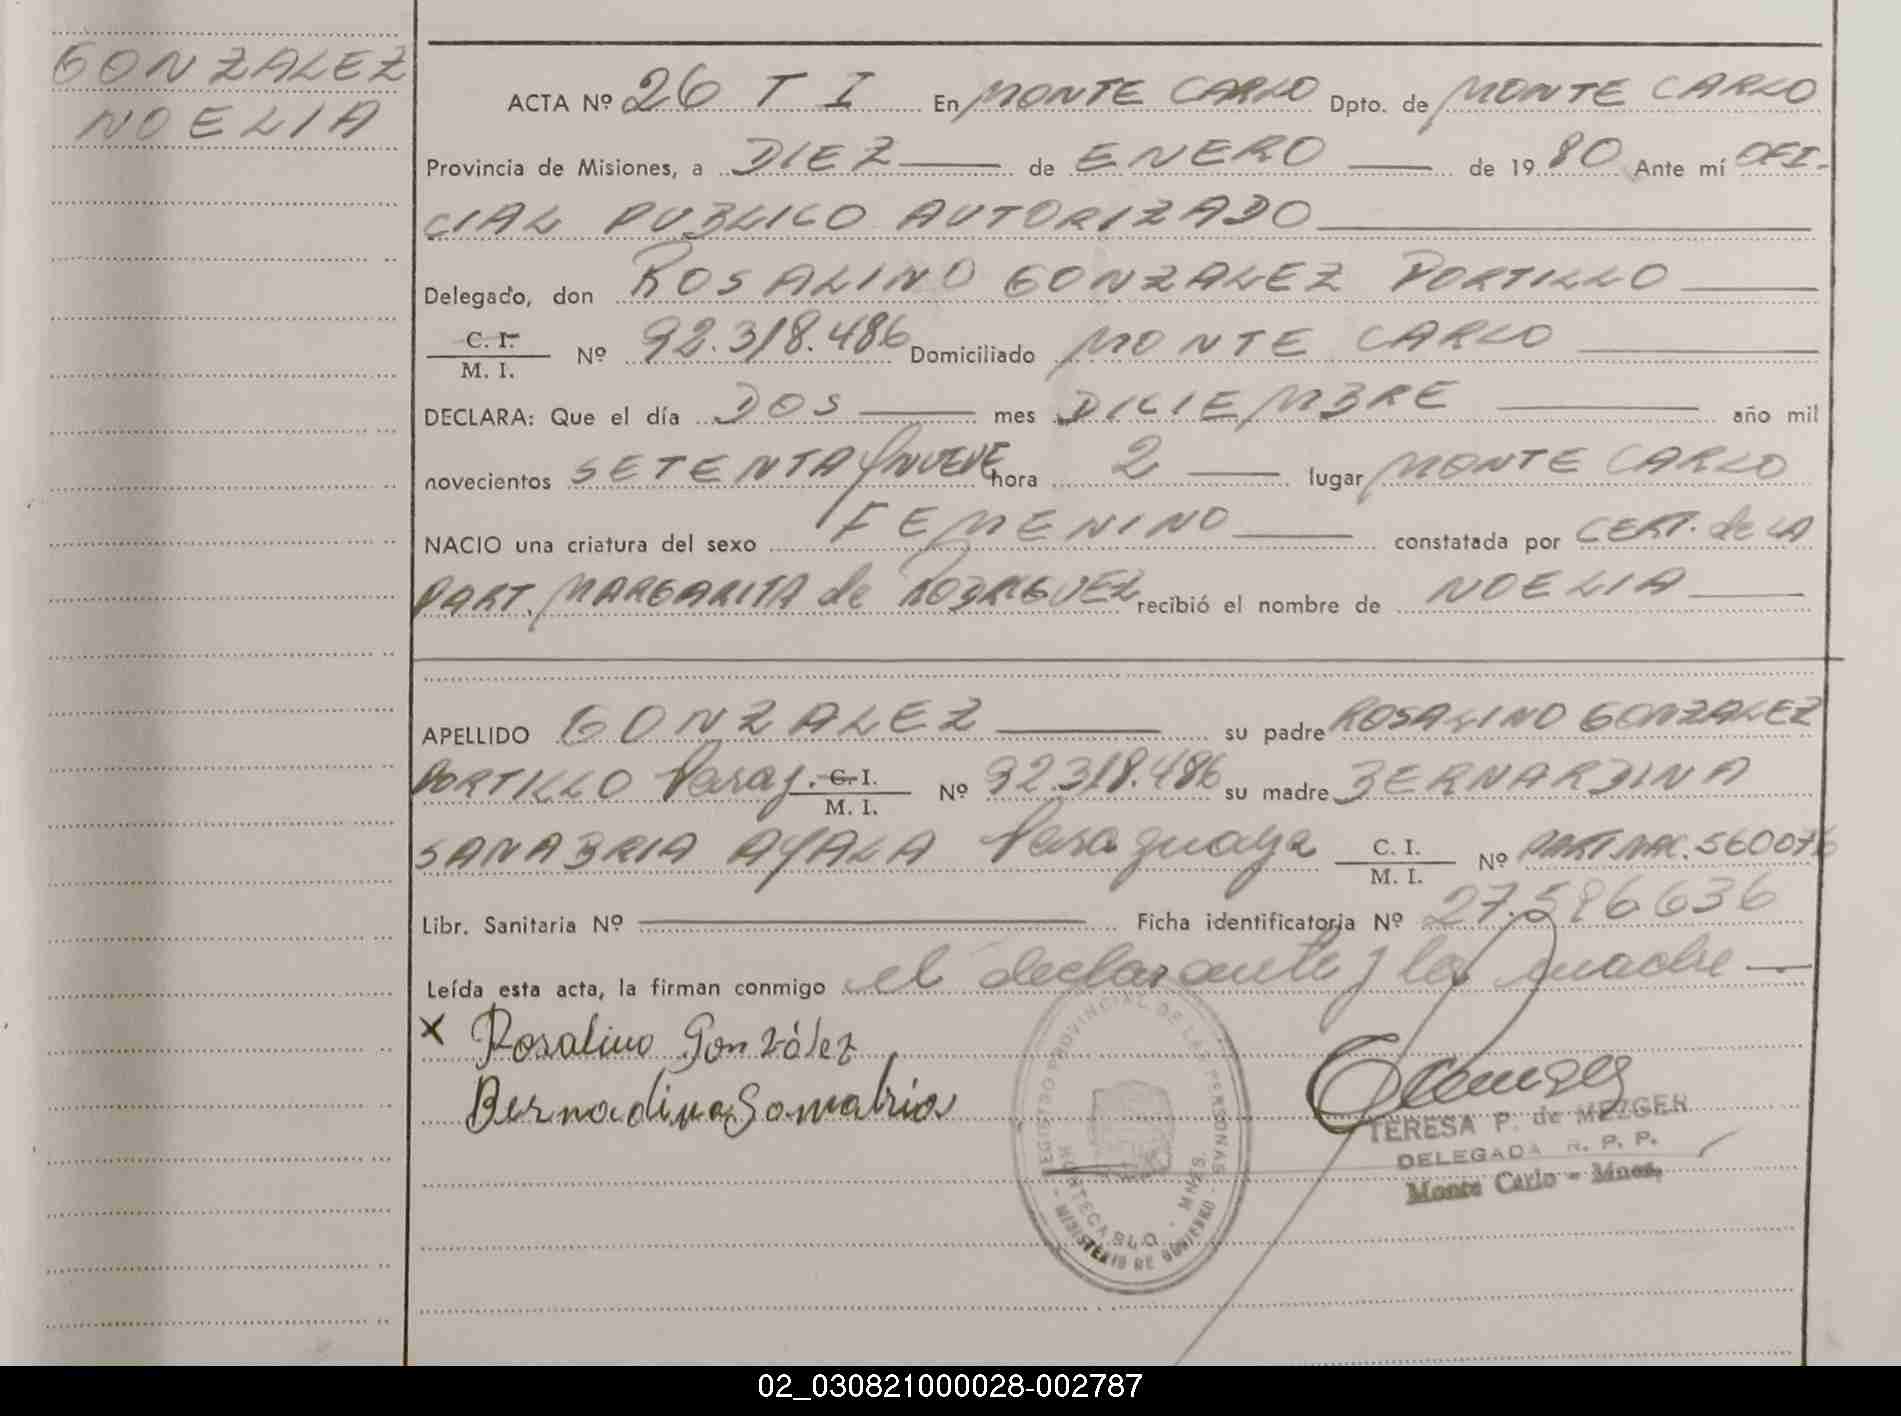 GONZALEZ
NOELIA
ACTA Nº 26 T I En MONTE CARLO Dpto. de MONTE CARLO
Provincia de Misiones, a DIEZ de ENERO de 1980 Ante mí OFI-
CIAL PUBLICO AUTORIZADO
Delegado, don ROSALINO GONZALEZ PORTILLO
C. I.
M. I. Nº 92.318.486 Domiciliado MONTE CARLO
DECLARA: Que el día DOS mes DICIEMBRE año mil
novecientos SETENTA Y NUEVE hora 2 lugar MONTE CARLO
NACIO una criatura del sexo FEMENINO constatada por CERT. de LA
PART. MARGARITA de RODRIGUEZ recibió el nombre de NOELIA
APELLIDO GONZALEZ su padre ROSALINO GONZALEZ
PORTILLO Parag. C. I.
M. I. Nº 92.318.486 su madre BERNARDINA
SANABRIA AYALA Paraguaya C. I.
M. I. Nº PART. NAC. 560076
Libr. Sanitaria Nº Ficha identificatoria Nº 27.586.636
Leída esta acta, la firman conmigo el declarante y la madre
x Rosalino González
Bernadina Sanabria
REGISTRO PROVINCIAL DE LAS PERSONAS
MONTECARLO - MNES.
MINISTERIO DE GOBIERNO
TERESA P. de MEZGER
DELEGADA R. P. P.
Monte Carlo - Mnes.
02_030821000028-002787